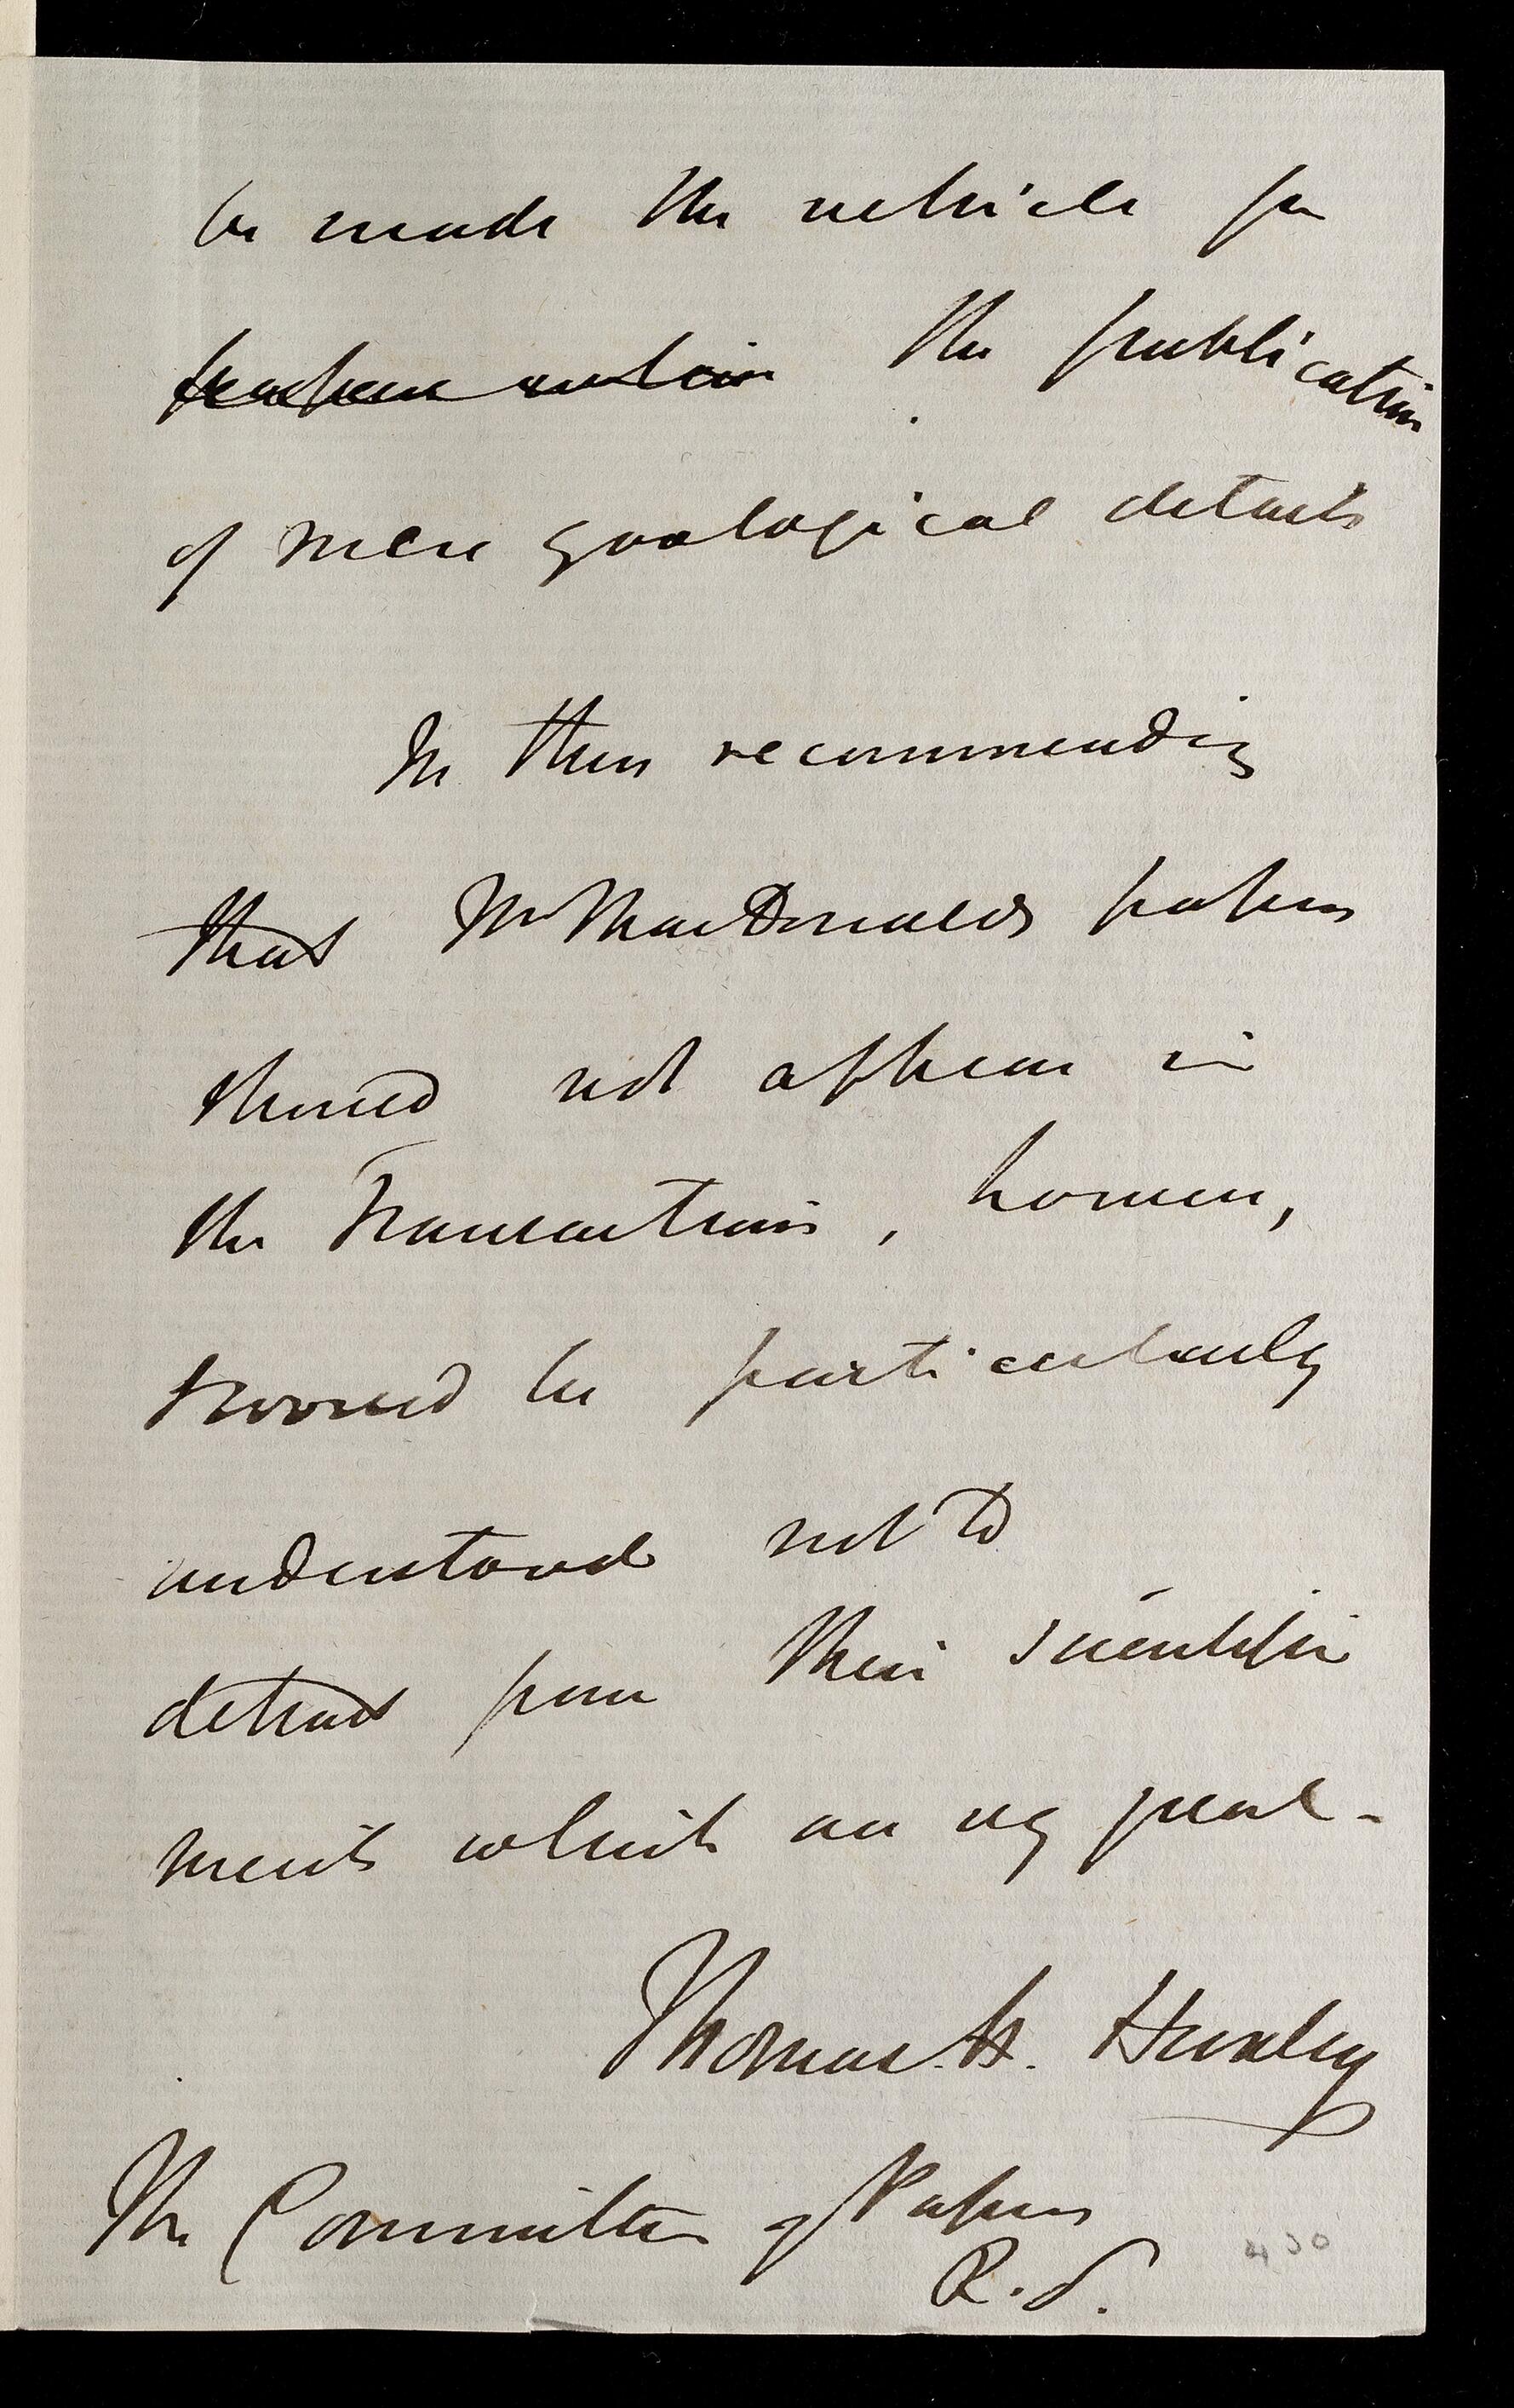 be made the vehicle for
the publication
of mere zoological details
In thus recommending
that Mr MacDonald's papers
should not appear in
the Transactions, however,
I would be particularly
understood not to
detract from their scientific
merits which are very great -
Thomas H. Huxley
The Committee of Papers
R. S.
430